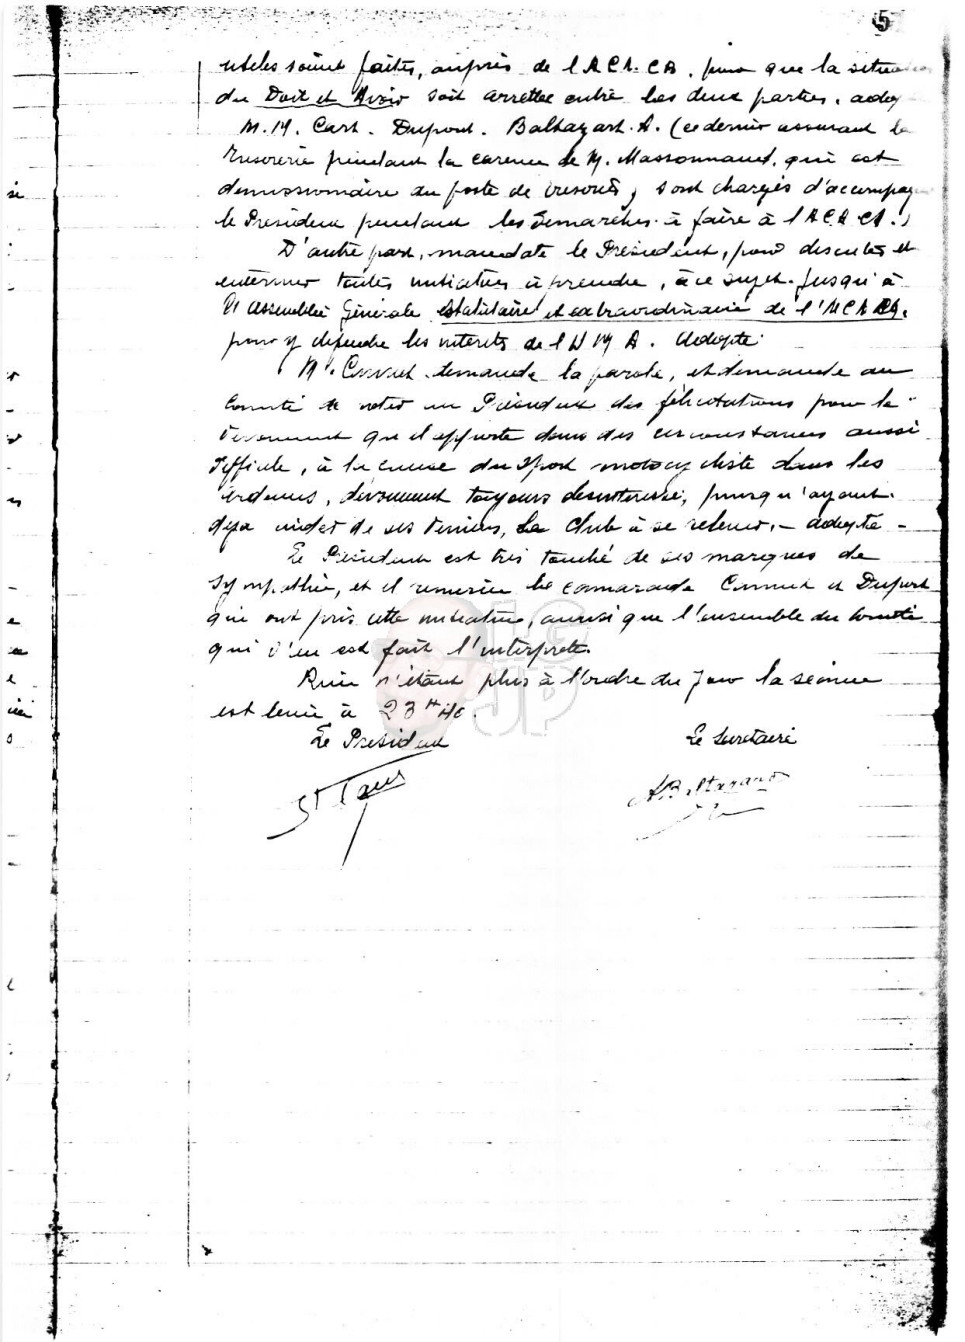 5
utiles soient faites, auprès de l'ACA.CA. pour que la situa
du Doit et Avoir soit arrettée entre les deux parties. adop
M.M. Cart. Dupont. Balthazart. A. (ce dernier assurant la
Tresorerie pendant la carence de M. Massonnaud, qui est
demissionnaire du poste de tresorier, sont chargés d'accompag
le President pendant les demarches à faire à l'ACA.CA.)
D'autre part, mandate le President, pour discuter et
enteriner toutes initiatives à prendre, à ce sujet. Jusqu'à
l'assemblée Générale statutaire et extraordinaire de l'ACA.CA.
pour y defendre les interets de l'U M A. Adopté.
M. Connut demande la parole, et demande au
Comité de voter au President des félicitations pour le
devouement qu'il apporte dans des circonstances aussi
difficile, à la cause du sport motocycliste dans les
Ardennes, dévouement toujours desinteressé, puisqu'ayant
deja aidé de ses deniers, le Club à se relever. - adopté -
Le President est très touché de ses marques de
sympathie, et il remercie le camarade Connut et Dupont
qui ont pris cette initiative, aussi que l'ensemble du comité
qui s'en est fait l'interprete.
Rien n'étant plus à l'ordre du Jour la séance
est levée à 23 H 40.
Le President
Le Secretaire
A Baltazard
LG
JP